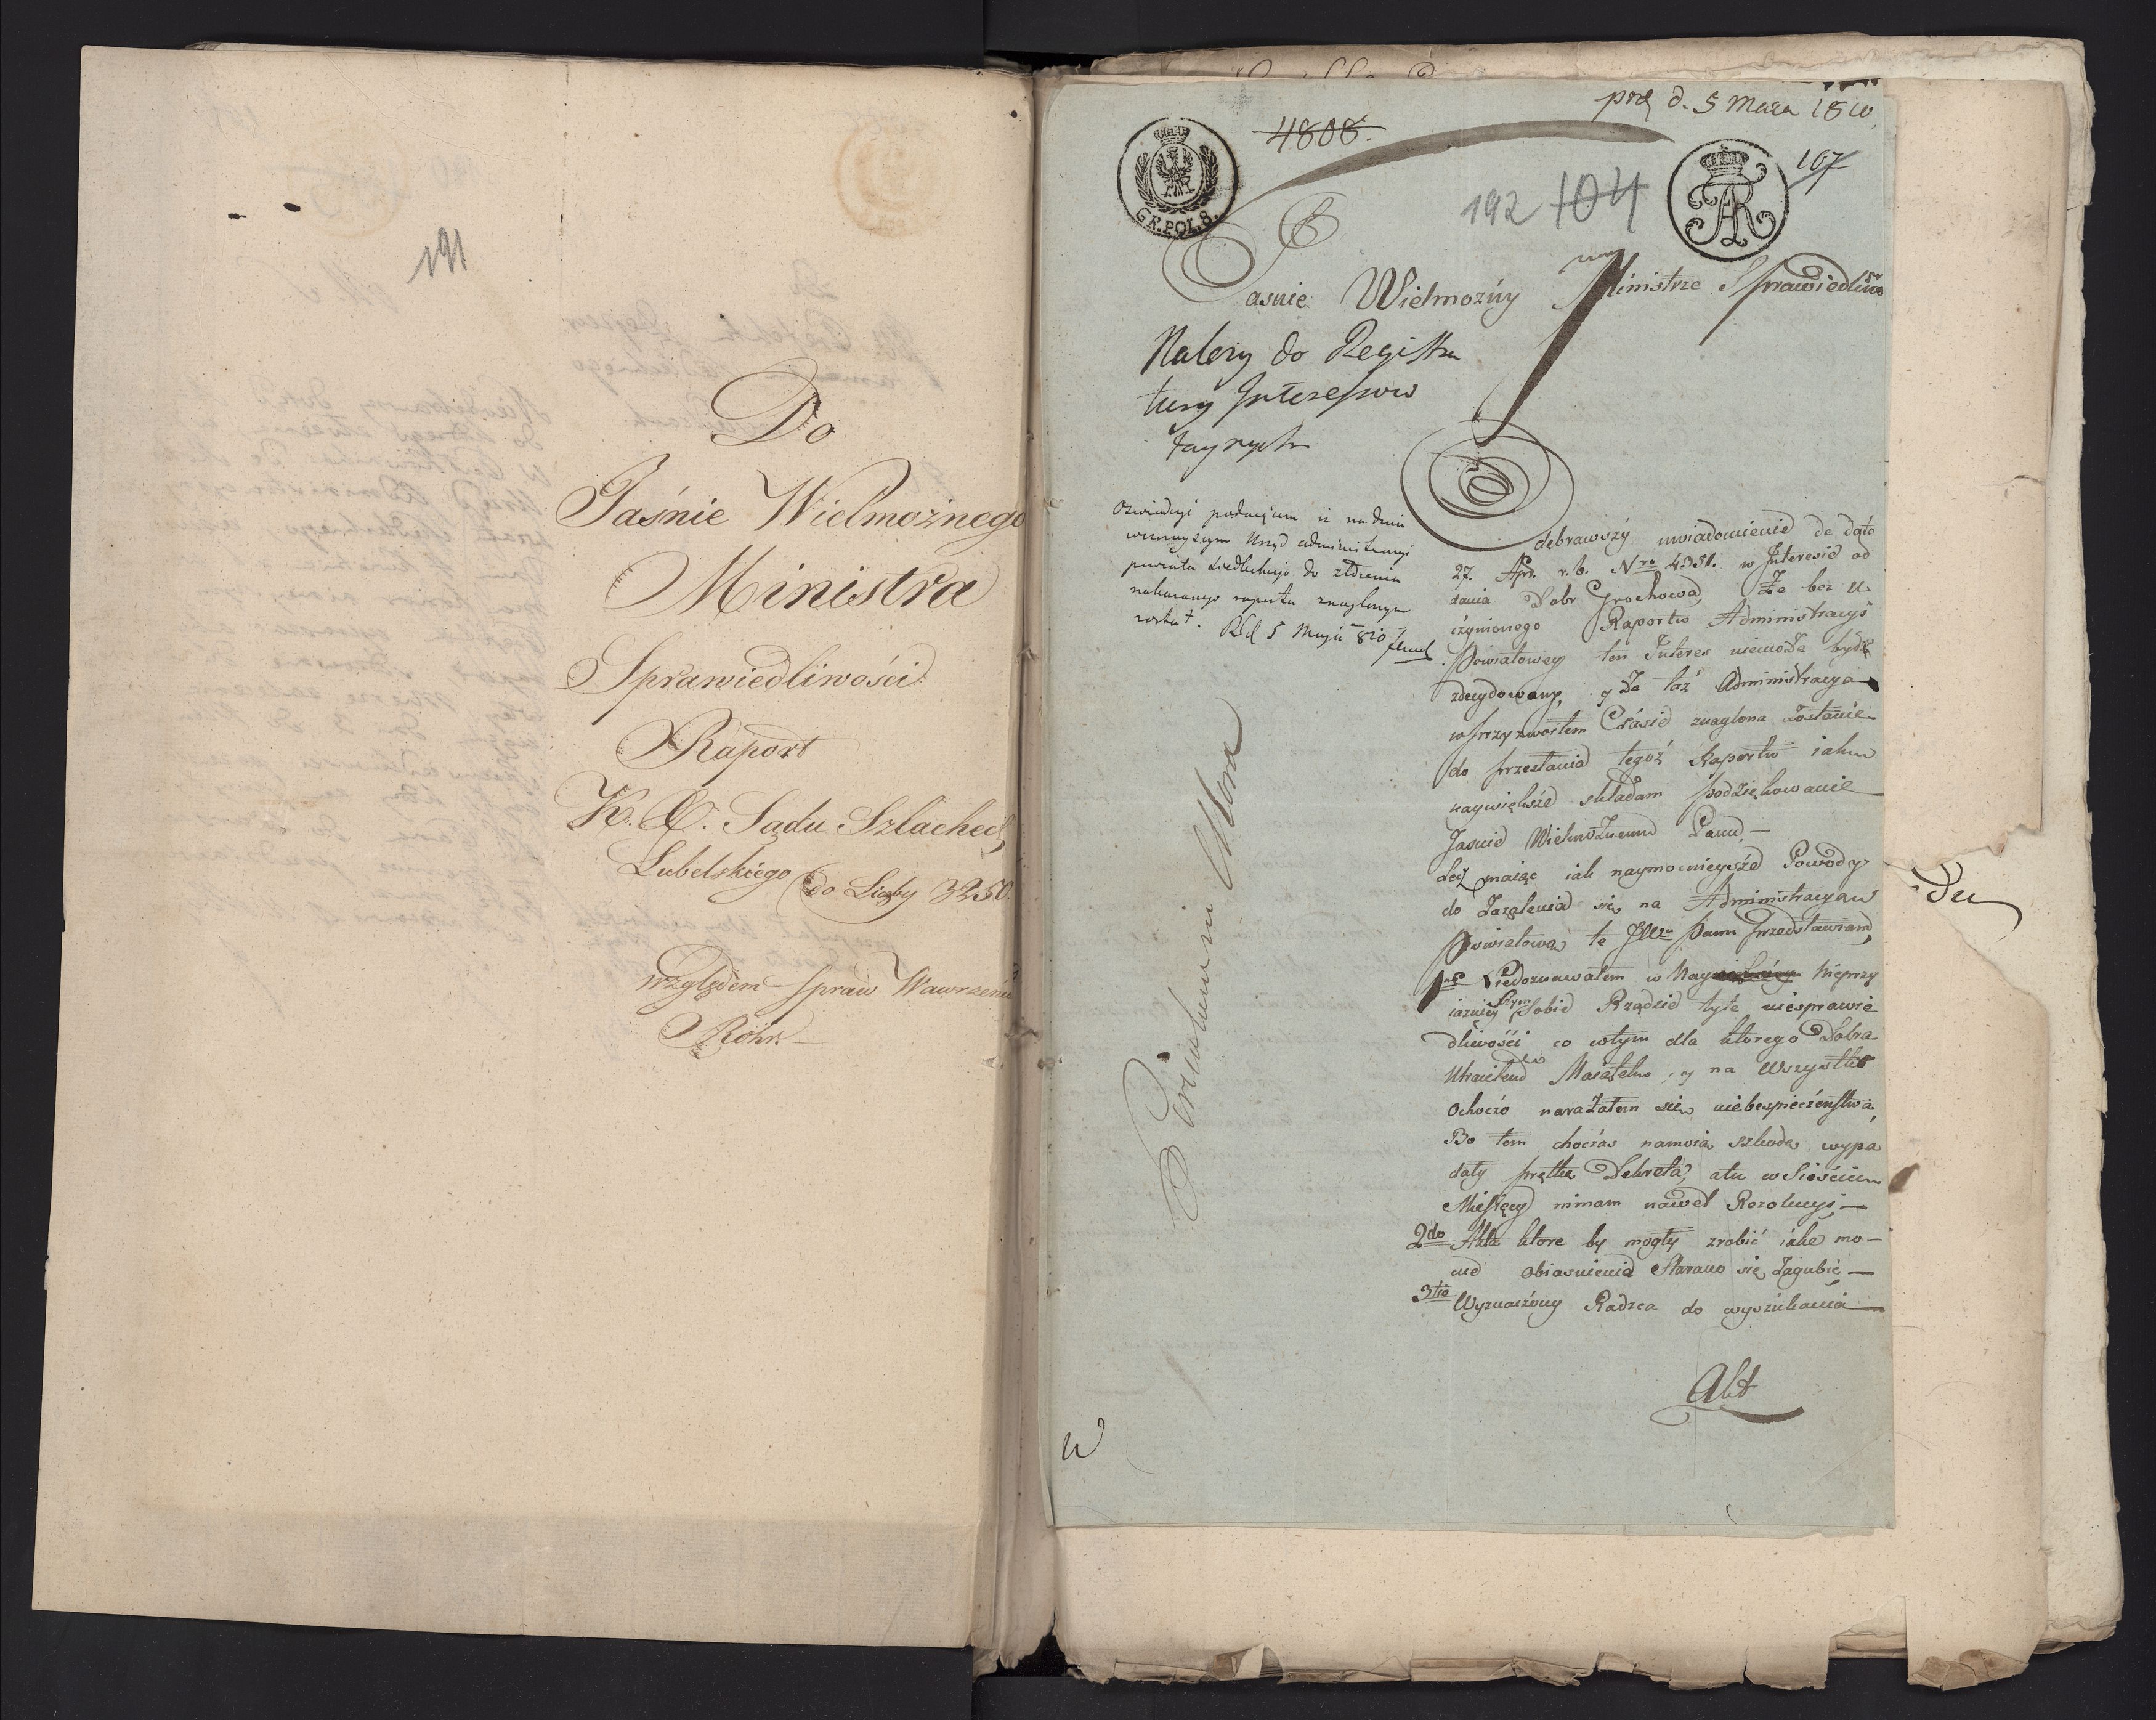 191
Do
Jaśnie Wielmożnego
Ministra
Sprawiedliwości
Raport
K. X. Sądu Szlachec,
Lubelskiego do Liczby 3250.
względem spraw Wawrzeńca
Röhr.
4808.
prz d. 5 Maia 1810
GR. POL. 8.
192 104
107
Jasnie Wielmożny Ministrze Sprawiedliwo
Należy do Registra
tury Interessow
Odwiedzi podaiącym iż na dniu
Urząd administracyi
powiatu Siedleckiego do złożenia
nakazanego raportu znaglonym
został. 5 Maja 810
debrawszy uwiadomienie de dato
27. Apr. r. b. Nro 4351. w Interesie od
dania Dobr Grochowa, Że bez u
czynionego Raportu Administracyi
Powiatowey ten Interes niemoże bydź
zdecydowany, y Że taż Administracya
w przyzwoitem Czasie znaglona Zostanie
do przesłania tegoż Raportu iakem
naywiększe składam podziękowanie
Jasnie Wielmożnemu Panu —
lecz maiąc iak naymocnieysze Powody
do Zażalenia się na Administracyą
Powiatową te JWu Panu Przedstawiam,
1mo Niedoznawałem w Nay nieprzy
iaźniey szym Sobie Rządzie tyle niesprawie
dliwości co wtym dla ktorego Dobra
Utraciłem Maiątek, y na Wszystko
Ochoczo narażałem się niebespieczeństwa,
Bo tem choczas namoią szkodę wypa
dały prętkie Dekreta, atu w Sześciu
Miesięcy nimam nawet Rezolucyi —
2do Akta ktore by mogły zrobić iakie mo—
cne obiasnienia starano się Zagubić —
3tio Wyznaczony Radzca do wyszukania
Akt
W
Du